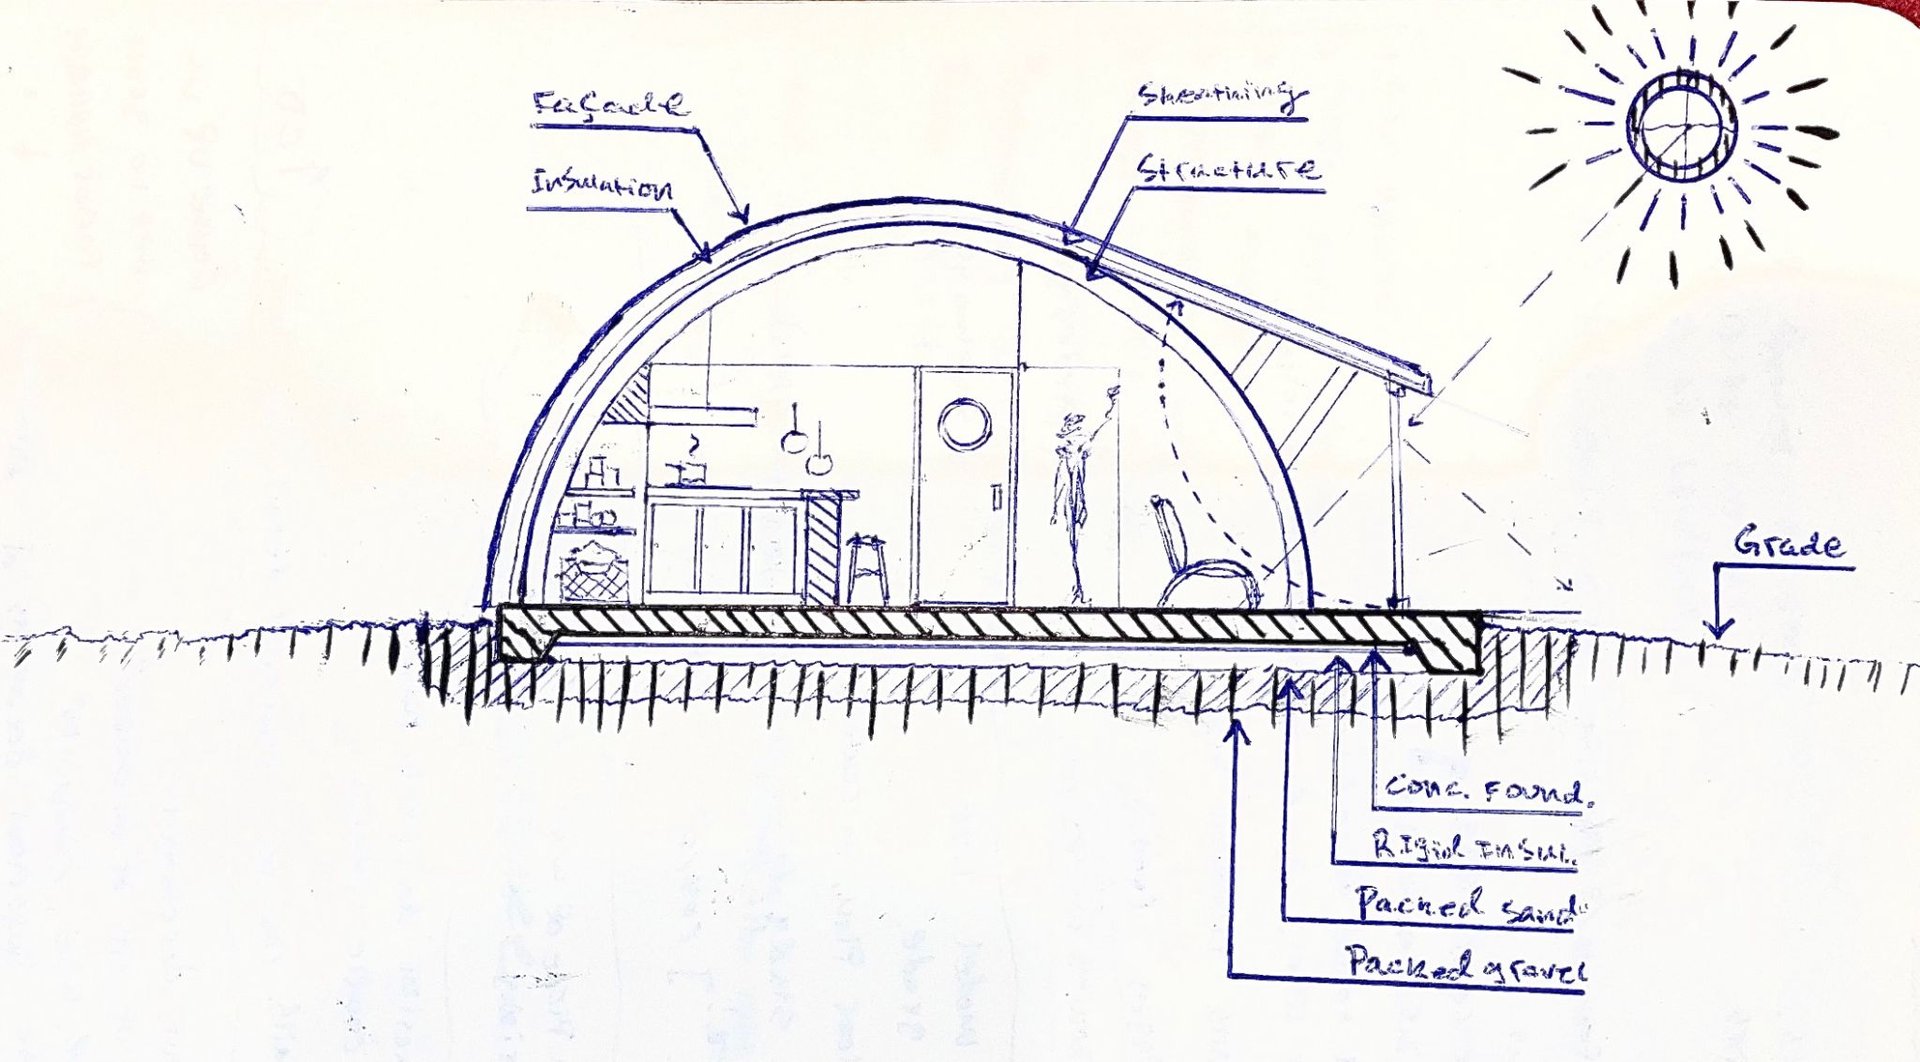 Façade
Sheathing
Insulation
Structure
Grade
Conc. Found.
Rigid Insul.
Packed sand
Packed gravel